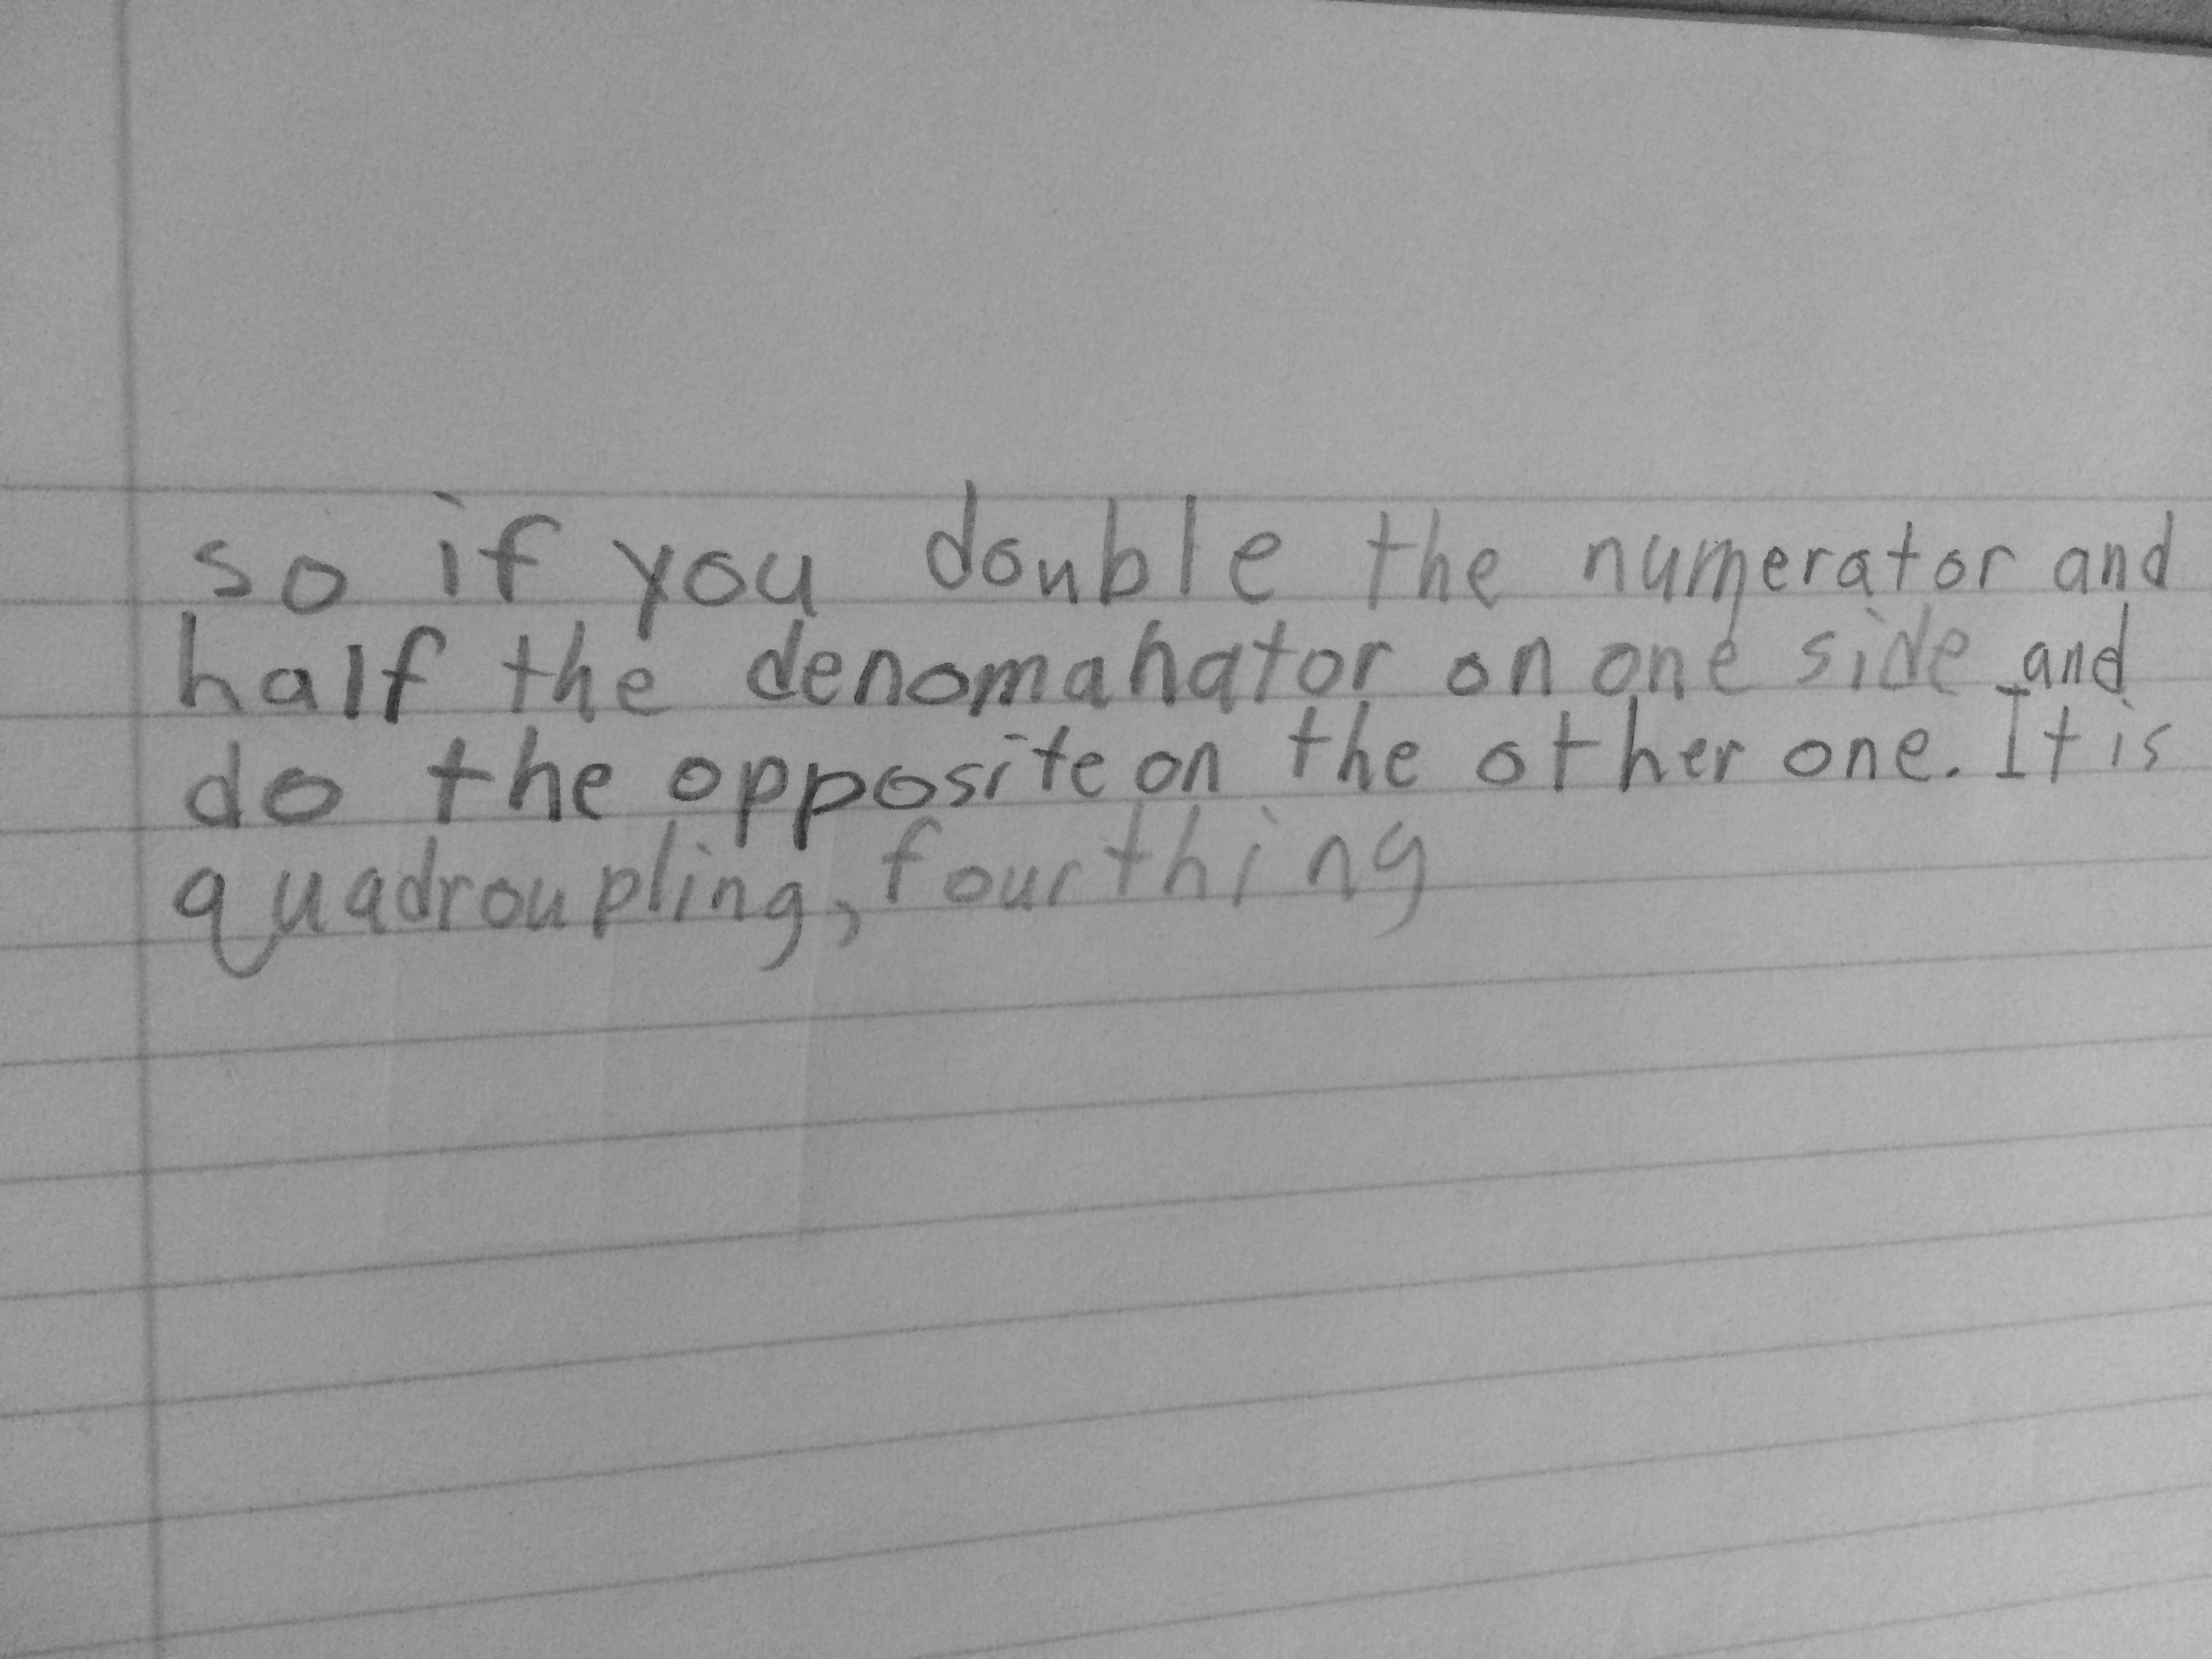 so if you double the numerator and
half the denomanator on one side and
do the opposite on the other one. It is
quadroupling, fourthing